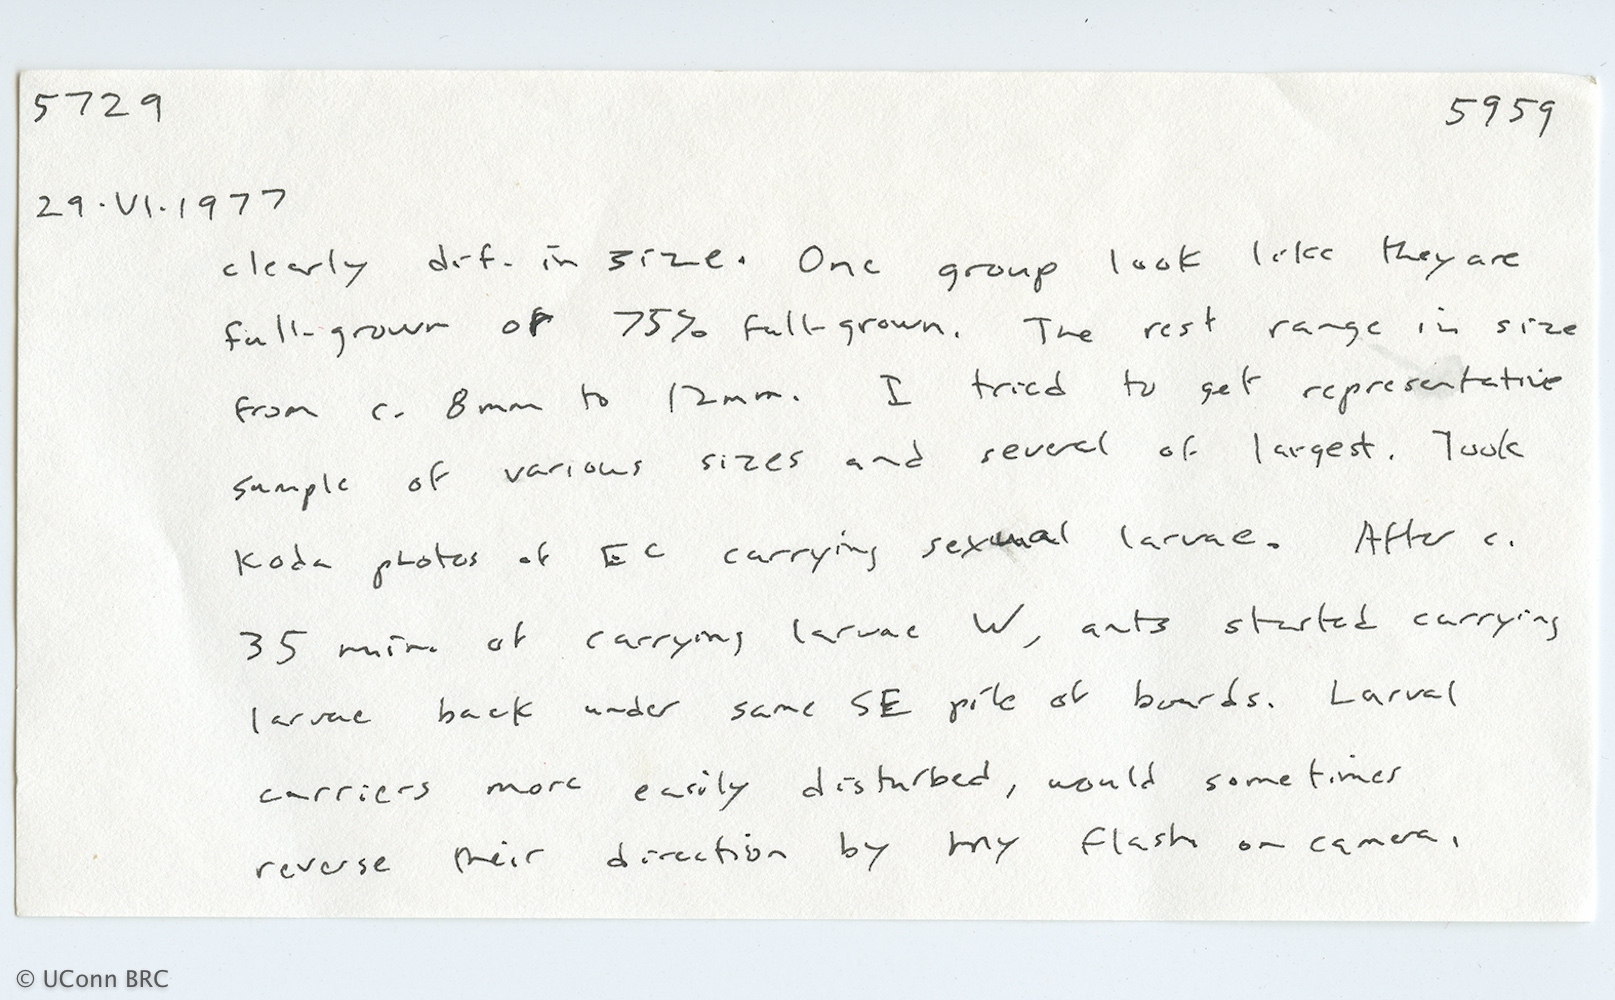 5729 5959
29.VI.1977
clearly dif. in size. One group look like they are
full-grown or 75% full-grown. The rest range in size
from c. 8mm to 12mm. I tried to get representative
sample of various sizes and several of largest. Took
Koda photos of EC carrying sexual larvae. After c.
35 min. of carrying larvae W, ants started carrying
larvae back under same SE pile of boards. Larval
carriers more easily disturbed, would sometimes
reverse their direction by my flash on camera.
© UConn BRC